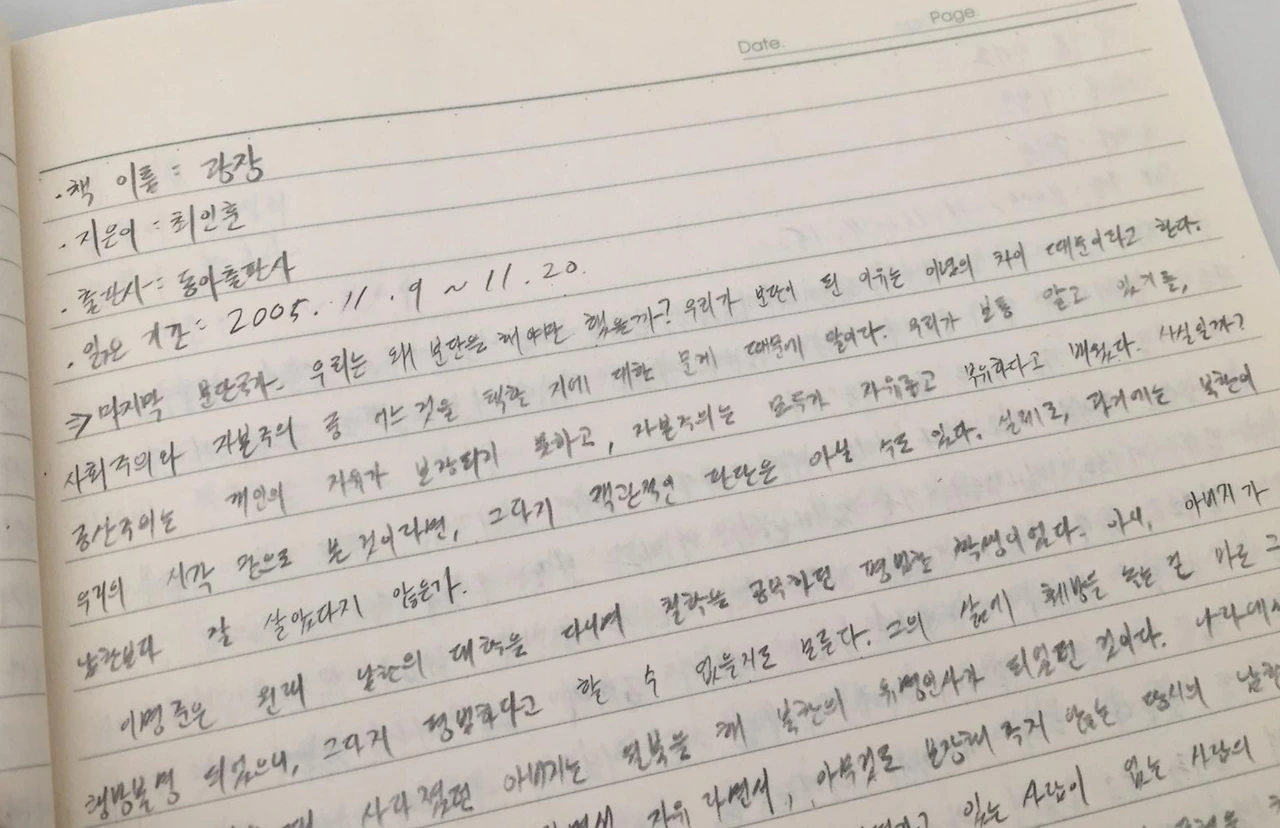 Date.
Page
· 책 이름 : 광장
· 지은이 : 최인훈
· 출판사 : 동아출판사
· 읽은 기간 : 2005. 11. 9 ~ 11. 20.
⇒ 마지막 분단국가. 우리는 왜 분단을 해야만 했을까? 우리가 분단이 된 이유는 이념의 차이 때문이라고 한다.
사회주의와 자본주의 중 어느 것을 택할 지에 대한 문제 때문에 말이다. 우리가 보통 알고 있기를,
공산주의는 개인의 자유가 보장되지 못하고, 자본주의는 모두가 자유롭고 부유하다고 배웠다. 사실일까?
우리의 시각 만으로 본 것이라면, 그다지 객관적인 판단은 아닐 수도 있다. 실제로, 과거에는 북한이
남한보다 잘 살았다지 않은가.
이명준은 원래 남한의 대학을 다니며 철학을 공부하던 평범한 학생이었다. 아니, 아버지가
행방불명 되었으니, 그다지 평범하다고 할 수 없을지도 모른다. 그의 삶에 훼방을 놓는 건 바로 그
사라졌던 아버지는 월북을 해 북한의 유명인사가 되었던 것이다. 나라에서
자유 라면서, 아무것도 보장해 주지 않는 당시의 남한
있는 사람이 없는 사람의